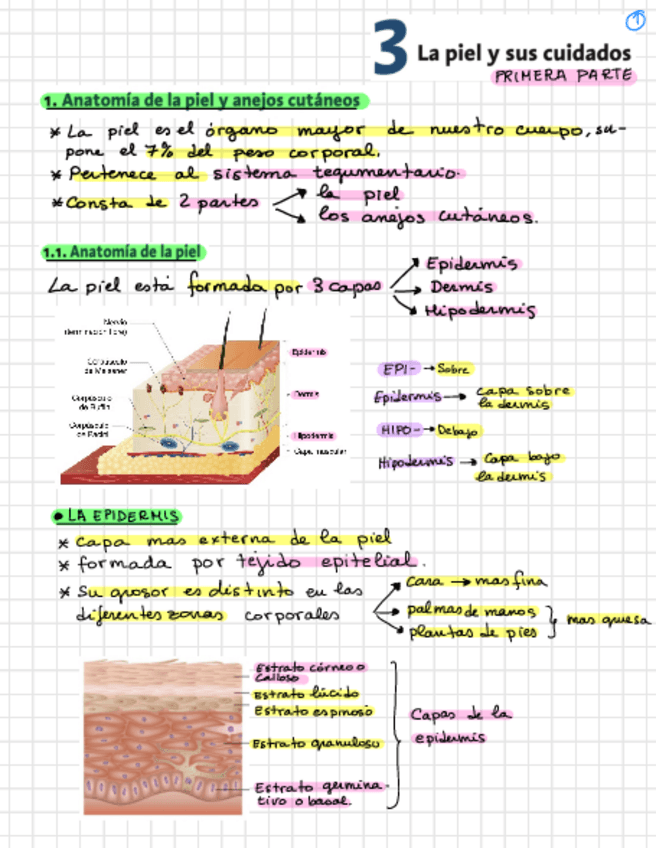 1
3 La piel y sus cuidados
PRIMERA PARTE
1. Anatomía de la piel y anejos cutáneos
* La piel es el órgano mayor de nuestro cuerpo, su-
pone el 7% del peso corporal.
* Pertenece al sistema tegumentario.
* Consta de 2 partes → la piel
→ los anejos cutáneos.
1.1. Anatomía de la piel
La piel está formada por 3 capas → Epidermis
→ Dermis
→ Hipodermis
Nervio
(terminación libre)
Corpúsculo
de Meissner
Corpúsculo
de Ruffini
Corpúsculo
de Pacini
Epidermis
Dermis
Hipodermis
Capa muscular
EPI- → Sobre
Epidermis → capa sobre
la dermis
HIPO- → Debajo
Hipodermis → Capa bajo
la dermis
• LA EPIDERMIS
* capa mas externa de la piel
* formada por tejido epitelial.
* Su grosor es distinto en las
diferentes zonas corporales
cara → mas fina
palmas de manos
plantas de pies
mas gruesa
Estrato córneo o
Calloso
Estrato lúcido
Estrato espinoso
Estrato granuloso
Estrato germina-
tivo o basal.
Capas de la
epidermis